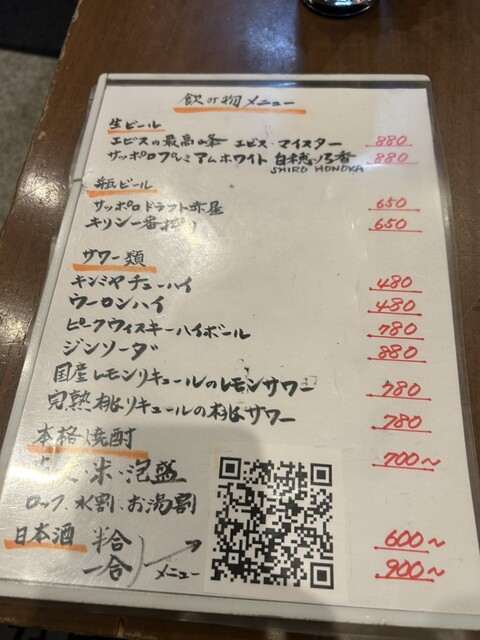 飲み物メニュー
生ビール
エビスの最高峰 エビス・マイスター 880
サッポロプレミアムホワイト 白穂乃香 880
SHIRO HONOKA
瓶ビール
サッポロドラフト赤星 650
キリン一番搾り 650
サワー類
キンミヤチューハイ 480
ウーロンハイ 480
ピークウィスキーハイボール 780
ジンソーダ 880
国産レモンリキュールのレモンサワー 780
完熟桃リキュールの桃サワー 780
本格焼酎 700〜
米・泡盛
ロック・水割・お湯割
日本酒 半合 600〜
一合 900〜
メニュー